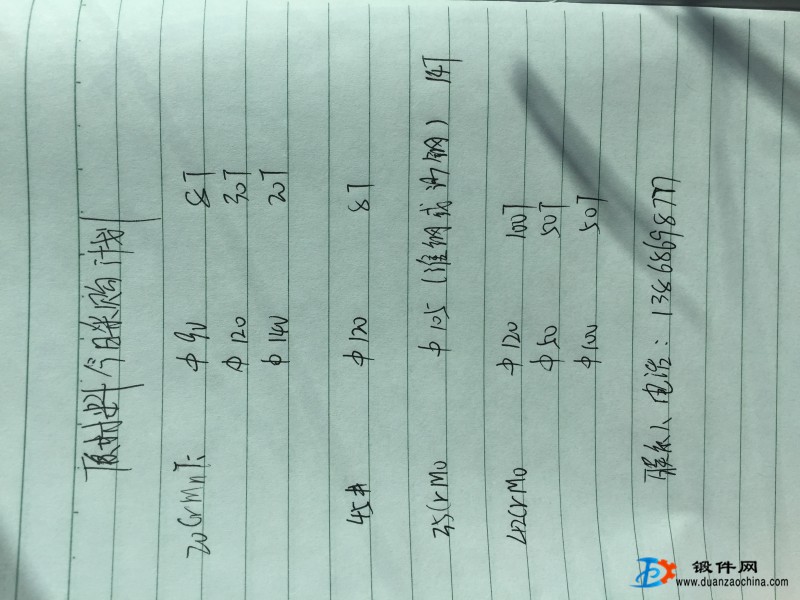 原材料今日采购计划
20CrMnTi φ90 8T
φ120 30T
φ140 20T
45# φ120 8T
35CrMo φ105 (淮钢或沙钢) 14T
42CrMo φ120 100T
φ50 50T
φ100 50T
联系人电话:
锻件网
www.duanzaochina.com